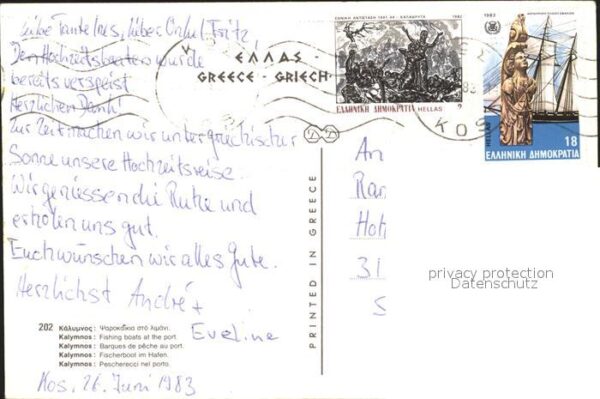 Liebe Tante Ines, lieber Onkel Fritz
Der Hochzeitsbatzen wurde
bereits verspeist
Herzlichen Dank!
Zur Zeit machen wir unter griechischer
Sonne unsere Hochzeitsreise.
Wir geniessen die Ruhe und
erholen uns gut.
Euch wünschen wir alles Gute.
Herzlichst André +
Eveline
202 Κάλυμνος: Ψαροκάϊκα στό λιμάνι.
Kalymnos: Fishing boats at the port.
Kalymnos: Barques de pêche au port.
Kalymnos: Fischerboot im Hafen.
Kalymnos: Pescherecci nel porto.
Kos, 26. Juni 1983
PRINTED IN GREECE
ΕΛΛΑΣ-
GREECE - GRIECH
ΕΘΝΙΚΗ ΑΝΤΙΣΤΑΣΗ 1941-44 - ΚΑΛΑΒΡΥΤΑ 1982
ΕΛΛΗΝΙΚΗ ΔΗΜΟΚΡΑΤΙΑ HELLAS
1983
HELLAS 18
ΕΛΛΗΝΙΚΗ ΔΗΜΟΚΡΑΤΙΑ
An
Hot
31
S
privacy protection
Datenschutz